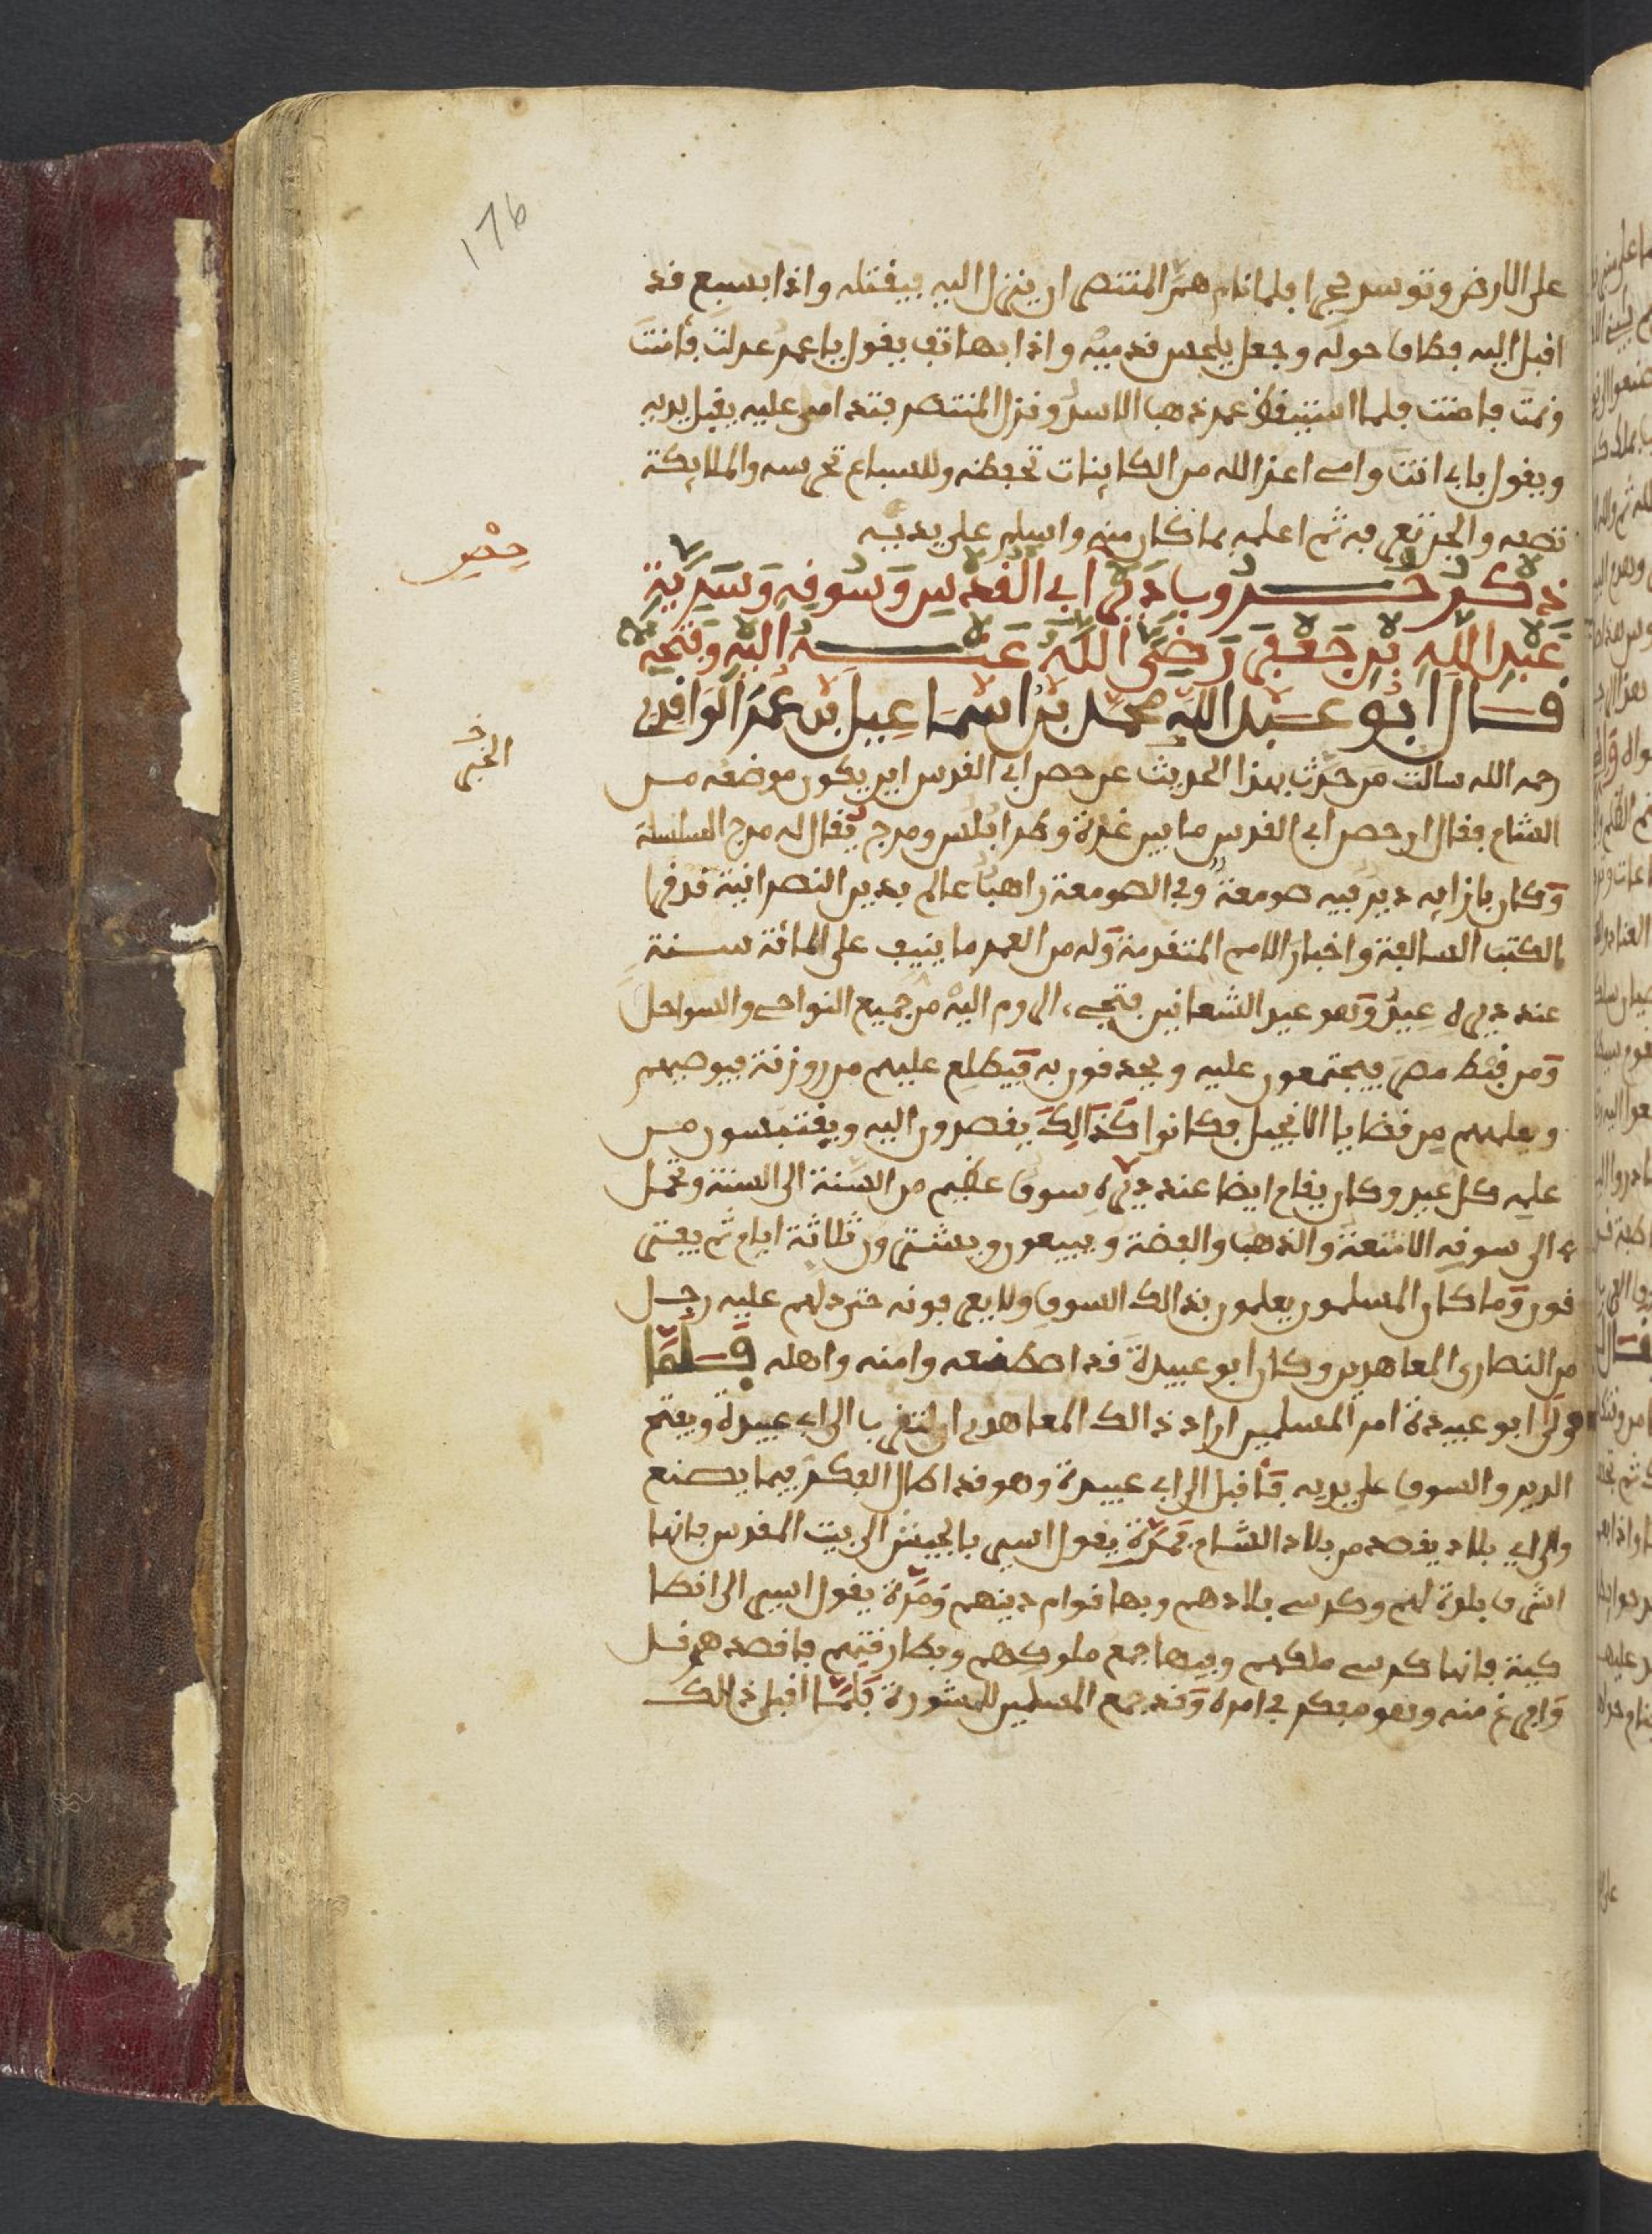 176
على الارض وتوسد حجرا فلما نام هم المتنصر ان ينزل اليه فيقتله واذا بسبع قد
اقبل اليه فطاف حوله وجعل يلحس قدميه واذا بهاتف يقول يا عمر عدلت فأنت
ونمت فامنت فلما استيقظ عمر ذهب الاسد ونزل المتنصر فترامى عليه يقبل يديه
ويقول بابي انت وامي اعز الله من الكاينات تحفظه وللسباع تحرسه والملايكة
تصفه والجن تعرفه ثم اعلمه بما كان منه واسلم على يديه
حصن
ذكر خبر وبا دير ابي القدس وسوقه وسرية
عبد الله بن جعفر رضي الله عنه اليه وفتحه
قال ابو عبد الله محمد بن اسماعيل بن عمر الواقدي
الخبر
رحمه الله سالت من حدث بهذا الحديث عن حصن ابي القدس اين يكون موضعه من
الشام فقال ان حصن ابي القدس ما بين غزة وطرابلس ومرج يقال له مرج السلسلة
وكان بازايه دير فيه صومعة وفي الصومعة راهبا عالم بدين النصرانية قد قرا
الكتب السالفة واخبار الامم المتقدمة وله من العمر ما ينيف على المائة سنة
عند ديره عيد وهو عيد الشعانين فتجيء الروم اليه من جميع النواحي والسواحل
ومن قبط مصر فيجتمعون عليه ويحدقون به فيطلع عليهم من روزنة فيوصيهم
ويعلمهم من قضايا الانجيل فكانوا كذالك يقصدون اليه ويقتبسون من
علمه كل عيد وكان يقام ايضا عند ديره سوق عظيم من السنة الى السنة وتحمل
الى سوقه الامتعة والذهب والفضة ويبيعون ويشترون ثلاثة ايام ثم يفتر
قون وما كان المسلمون يعلمون بذالك السوق ولا يعرفونه حتى دلهم عليه رجل
من النصارى المعاهدين وكان ابو عبيدة قد اصطنعه وامنه واهله فلما
ولي ابو عبيدة امر المسلمين اراد ذالك المعاهدي ان يتقرب الى ابي عبيدة ويفتح
الدير والسوق على يديه فأقبل الى ابي عبيدة وهو قد اطال الفكر فيما يصنع
والى اي بلاد يقصد من بلاد الشام فمرة يقول اسير بالجيش الى بيت المقدس فانها
اشرف بلدة لهم وكرسي بلادهم وبها قوام دينهم ومرة يقول اسير الى انطا
كية فانها كرسي ملكهم وفيها جمع ملوكهم وبطارقتهم فاقصد هرقل
وافرغ منه وهو مفكر في امره وقد جمع المسلمين للمشورة فلما اقبل ذالك